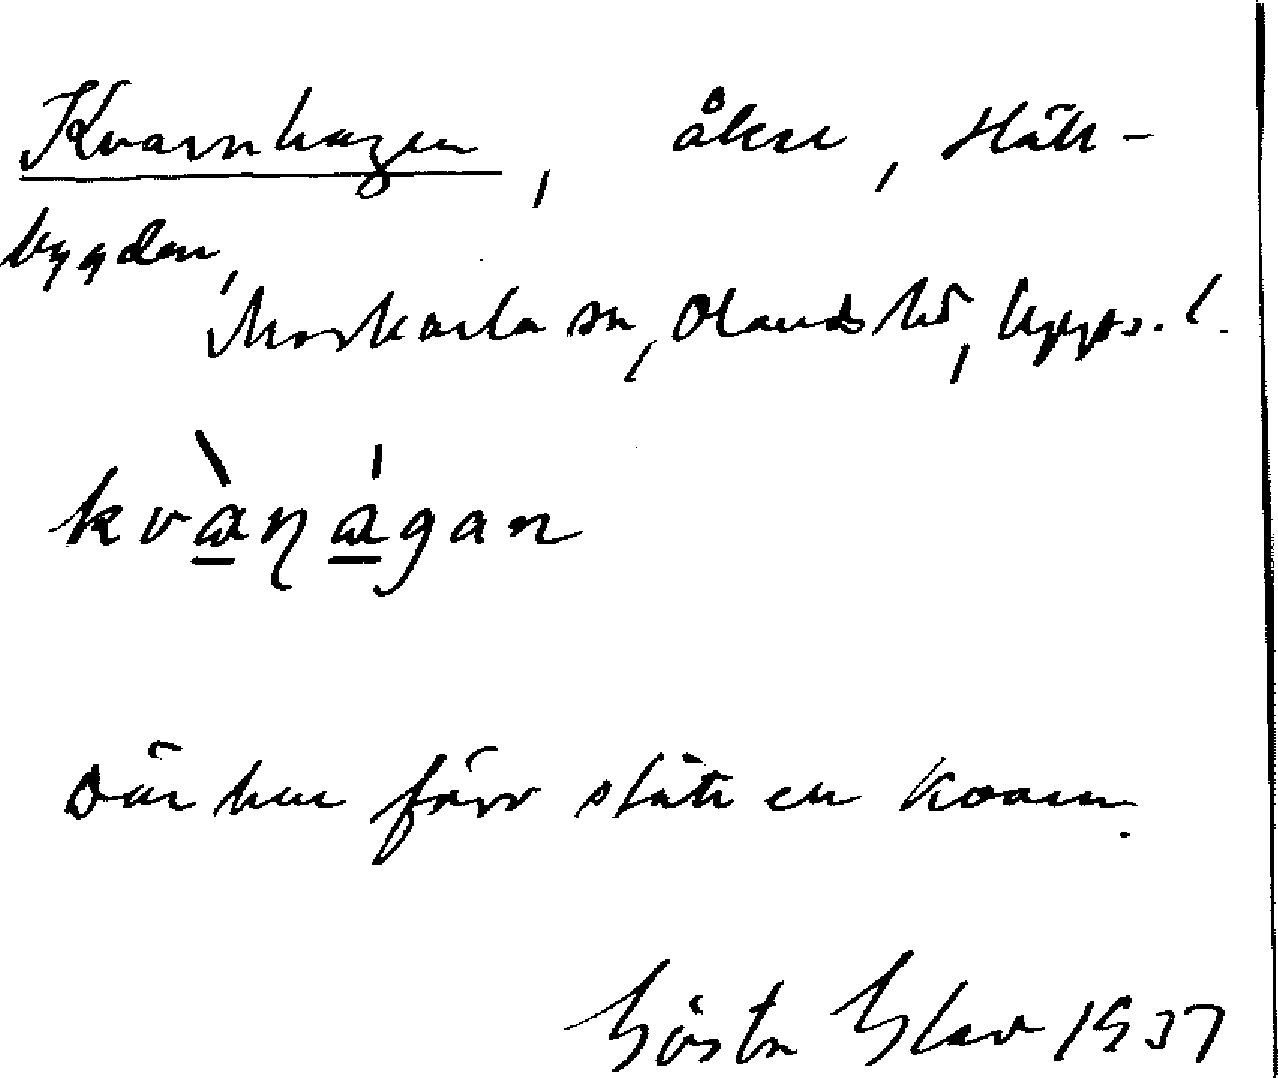 Kvarnhagen, åker, Häll-
bygden,
Morkarla sn, Olands hd, Upps. l.
kvàn̠ágan
Där har förr stått en kvarn.
Gösta 1937